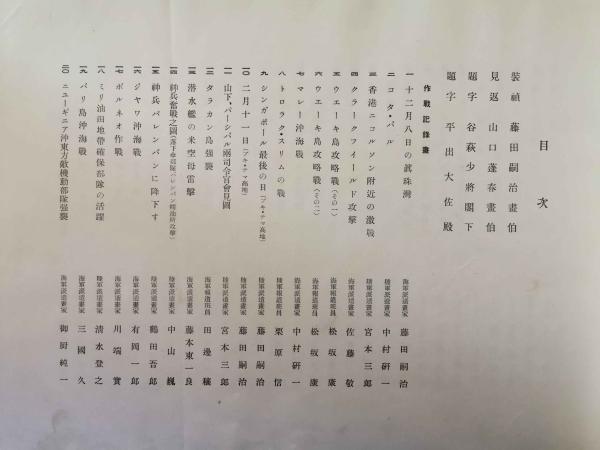 目次
裝幀 藤田嗣治畫伯
見返 山口蓬春畫伯
題字 谷萩少將閣下
題字 平出大佐殿
作戰記錄畫
一 十二月八日の眞珠灣 海軍派遣畫家 藤田嗣治
二 コタ・バル 陸軍派遣畫家 中村研一
三 香港ニコルソン附近の激戰 陸軍派遣畫家 宮本三郎
四 クラークフイールド攻擊 海軍派遣畫家 佐藤敬
五 ウエーキ島攻略戰(その一) 海軍報道班員 松坂康
六 ウエーキ島攻略戰(その二) 海軍報道班員 松坂康
七 マレー沖海戰 海軍派遣畫家 中村研一
八 トロラク・スリムの戰 陸軍報道班員 栗原信
九 シンガポール最後の日(ブキ・テマ高地) 陸軍派遣畫家 藤田嗣治
一〇 二月十一日(ブキ・テマ高地) 陸軍派遣畫家 藤田嗣治
一一 山下、パーシバル兩司令官會見圖 陸軍派遣畫家 宮本三郎
一二 タラカン島强襲 海軍報道班員 田邊穰
一三 潛水艦の米空母雷擊 海軍派遣畫家 藤本東一良
一四 神兵奮戰之圖(落下傘部隊パレンバン精油所攻擊) 陸軍派遣畫家 中山巍
一五 神兵パレンバンに降下す 陸軍派遣畫家 鶴田吾郎
一六 ジヤワ沖海戰 海軍派遣畫家 有岡一郎
一七 ボルネオ作戰 海軍派遣畫家 川端實
一八 ミリ油田地帶確保部隊の活躍 陸軍派遣畫家 清水登之
一九 バリ島沖海戰 海軍派遣畫家 三國久
二〇 ニユーギニア沖東方敵機動部隊强襲 海軍派遣畫家 御厨純一